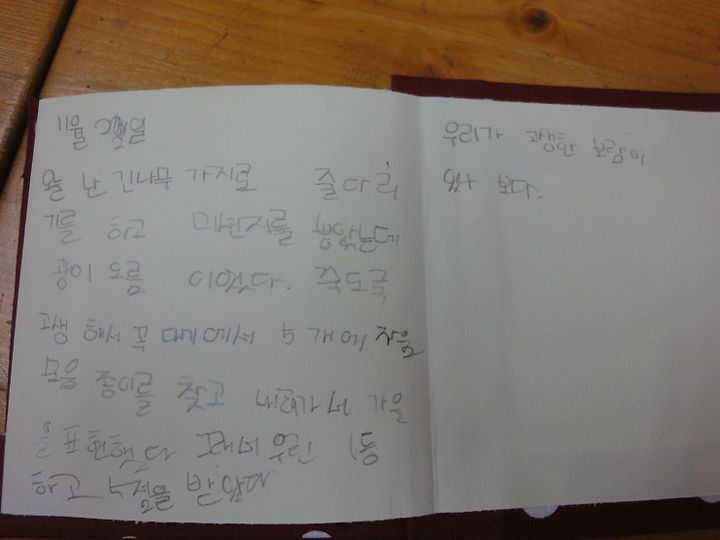 11월 22일
오늘 난 긴나무 가지로 줄다리
기를 하고 미션지를 뽑았는데
광이 오름 이었다. 죽도록
고생 해서 꼭대기에서 5개에 자음
모음 종이를 찾고 내려가서 가을
을 표현했다 그래서 우린 1등
하고 4점을 받았다
우리가 고생한 보람이
있나 보다.